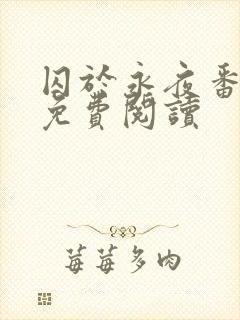 囚於永夜番
免費閱讀
莓莓多肉